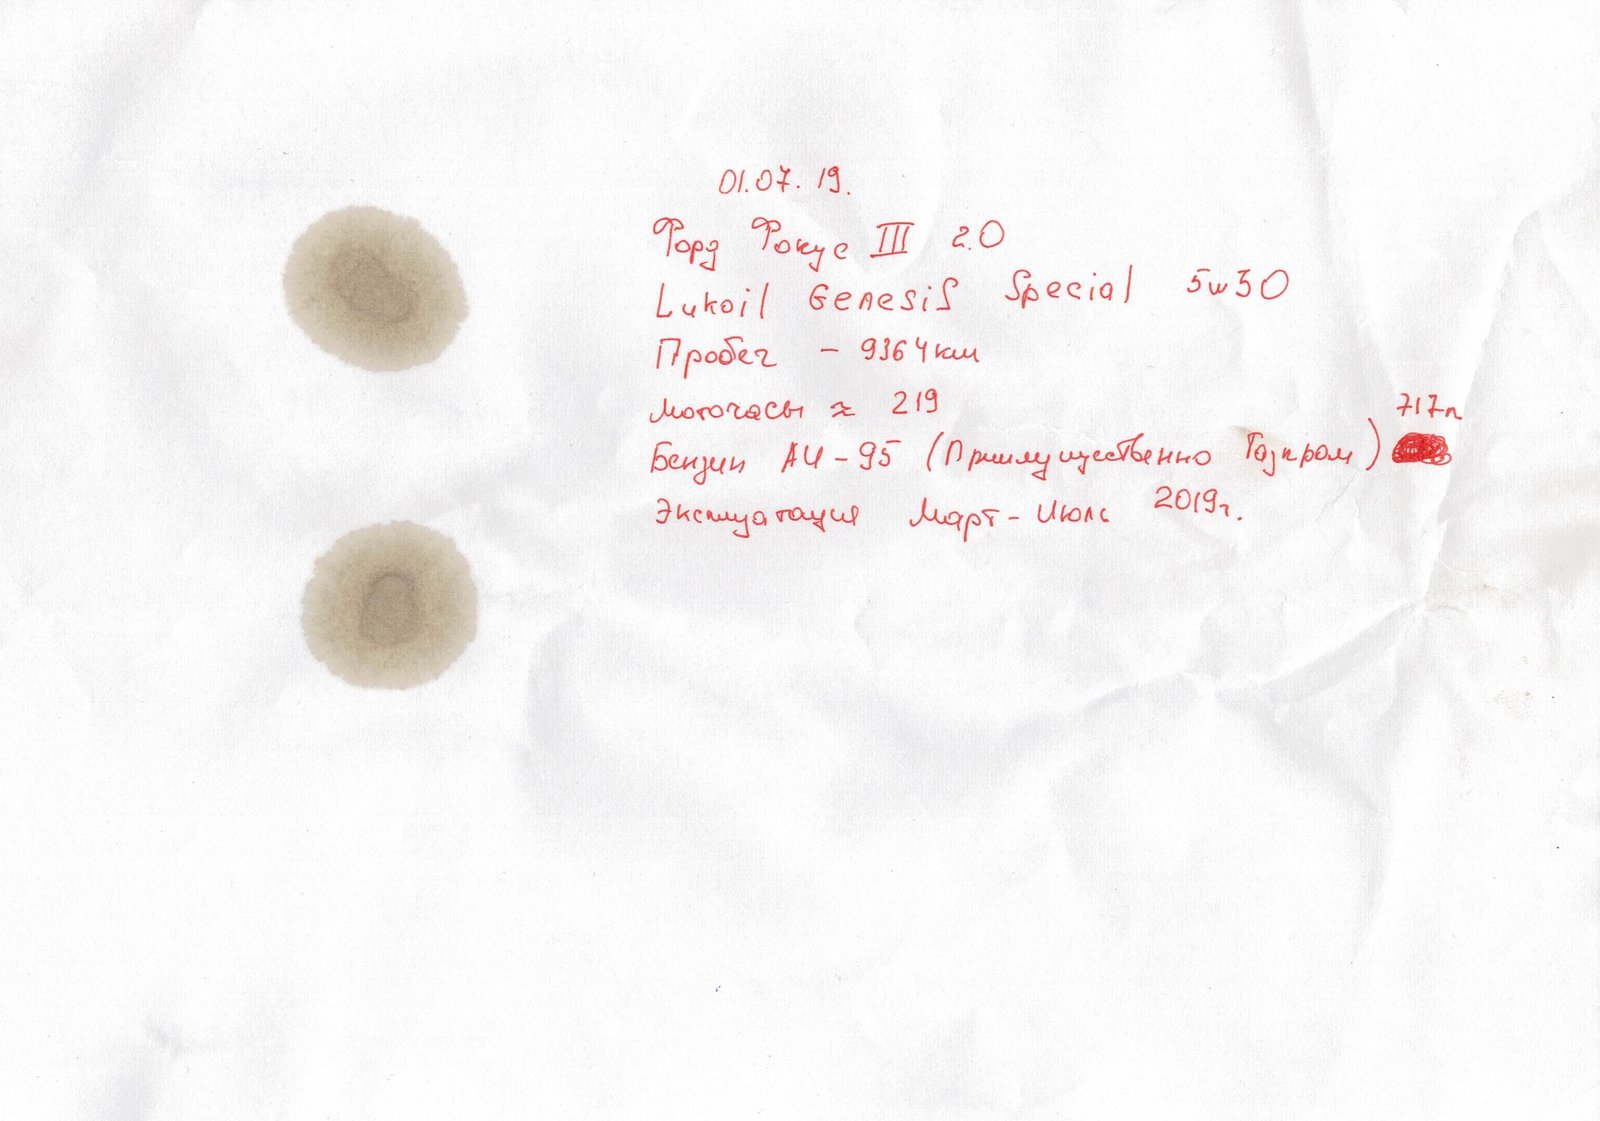 01.07.19.
Форд Фокус III 2.0
Lukoil Genesis Special 5w30
Пробег - 9364км
Моточасы ≈ 219
717л
Бензин АИ-95 (Приимущественно Газпром)
Эксплуатация Март-Июль 2019г.